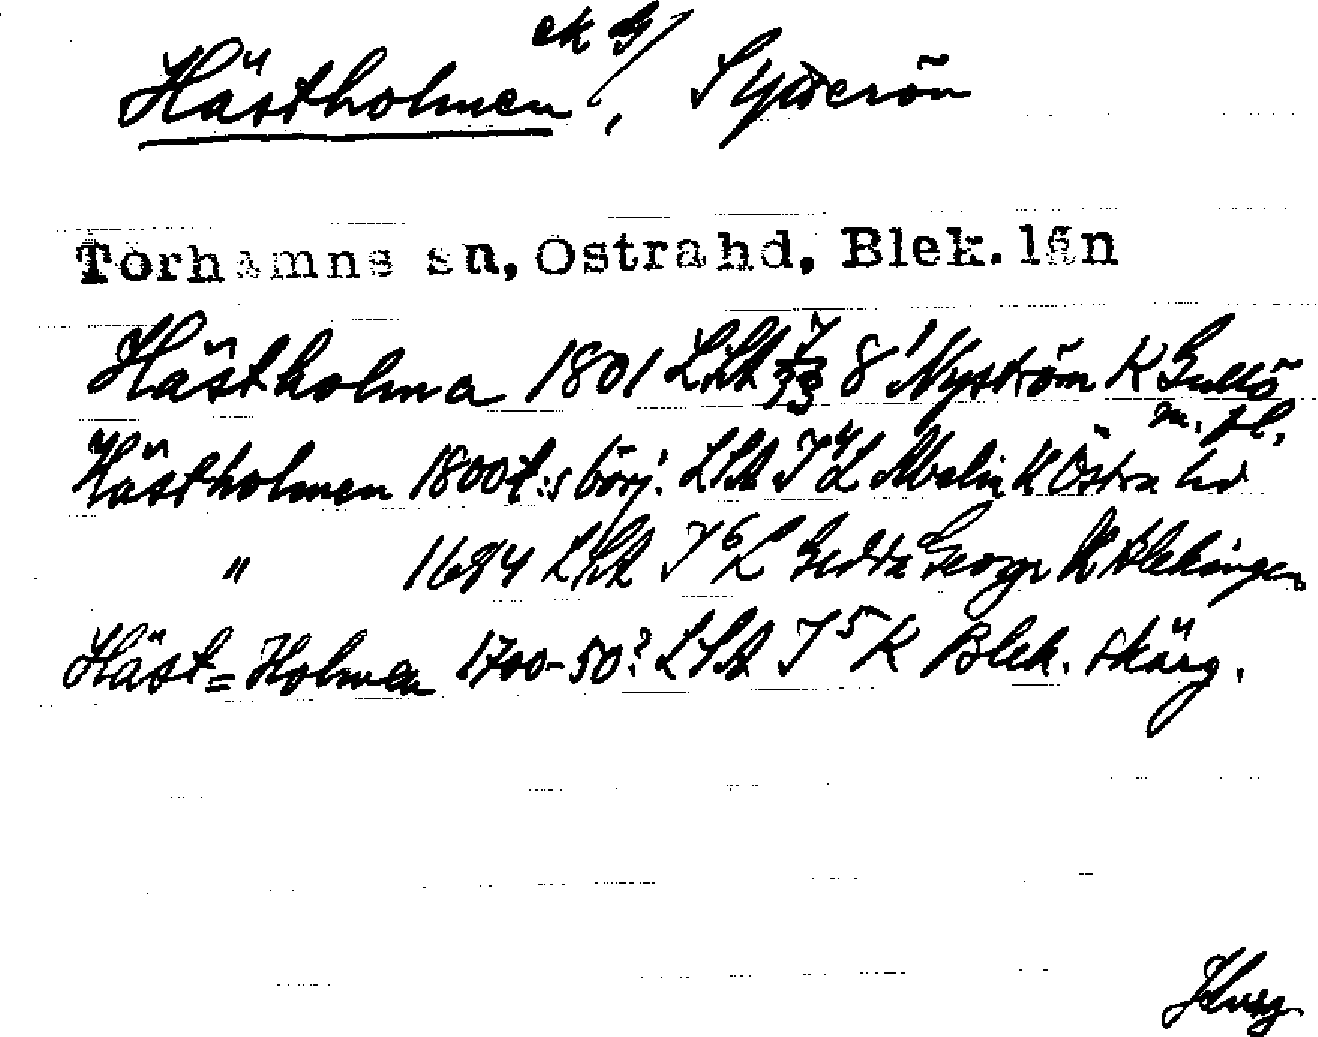 ek bl
Hästholmen, Sydderön
Torhamns sn, Östra hd, Blek. län
Hästholma 1801 LSA 8' Nyström K Gullö
m. fl.
Hästholmen 1800t:s börj. LSA J 4 L Melin K Östra hd
" 1694 LSA J 6 L Gedda George K Blekingen
Häst=Holmen 1700-50? LSA J 5 K Blek. skärg.